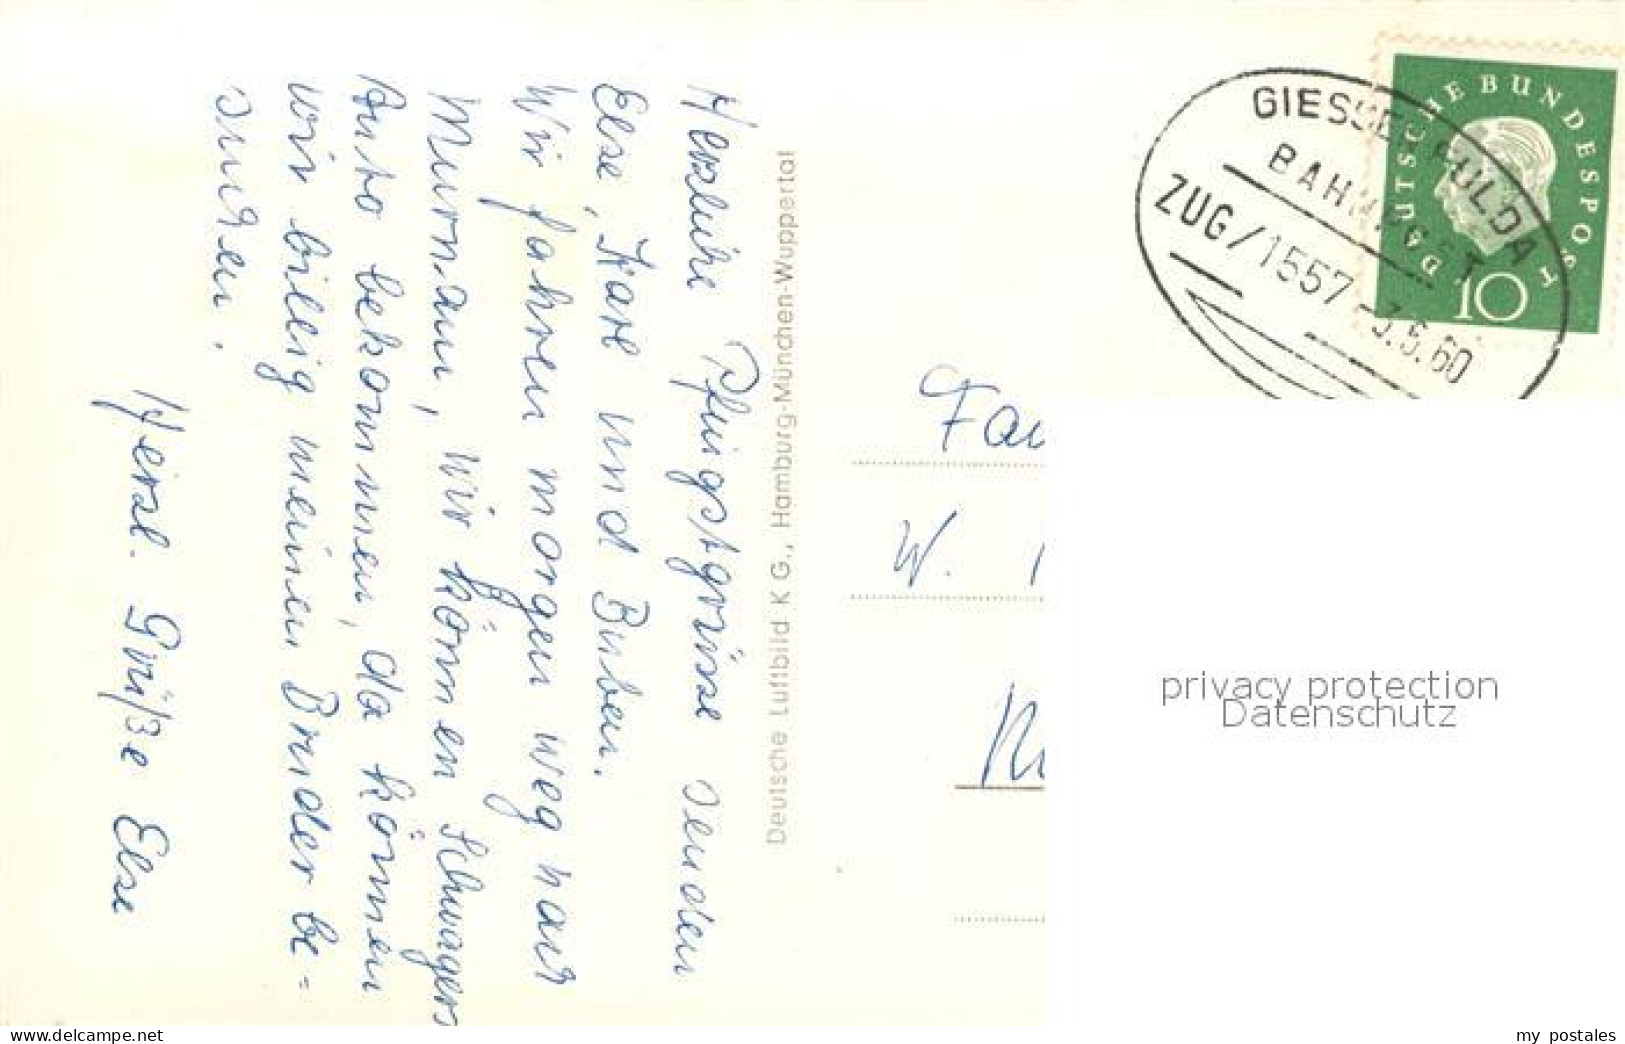 Herzliche Pfingstgrüsse senden
Else, Karl und Buben.
Wir fahren morgen weg nach
Murnau, wir können Schwagers
Auto bekommen, da können
wir billig meinen Bruder be=
suchen.
Herzl. Grüße Else
Deutsche Luftbild K G., Hamburg-München-Wuppertal
DEUTSCHE BUNDESPOST
10
GIESSEN FULDA
BAHNPOST
ZUG/1557 -3.6.60
Fam
W.
privacy protection
Datenschutz
www.delcampe.net
my_postales